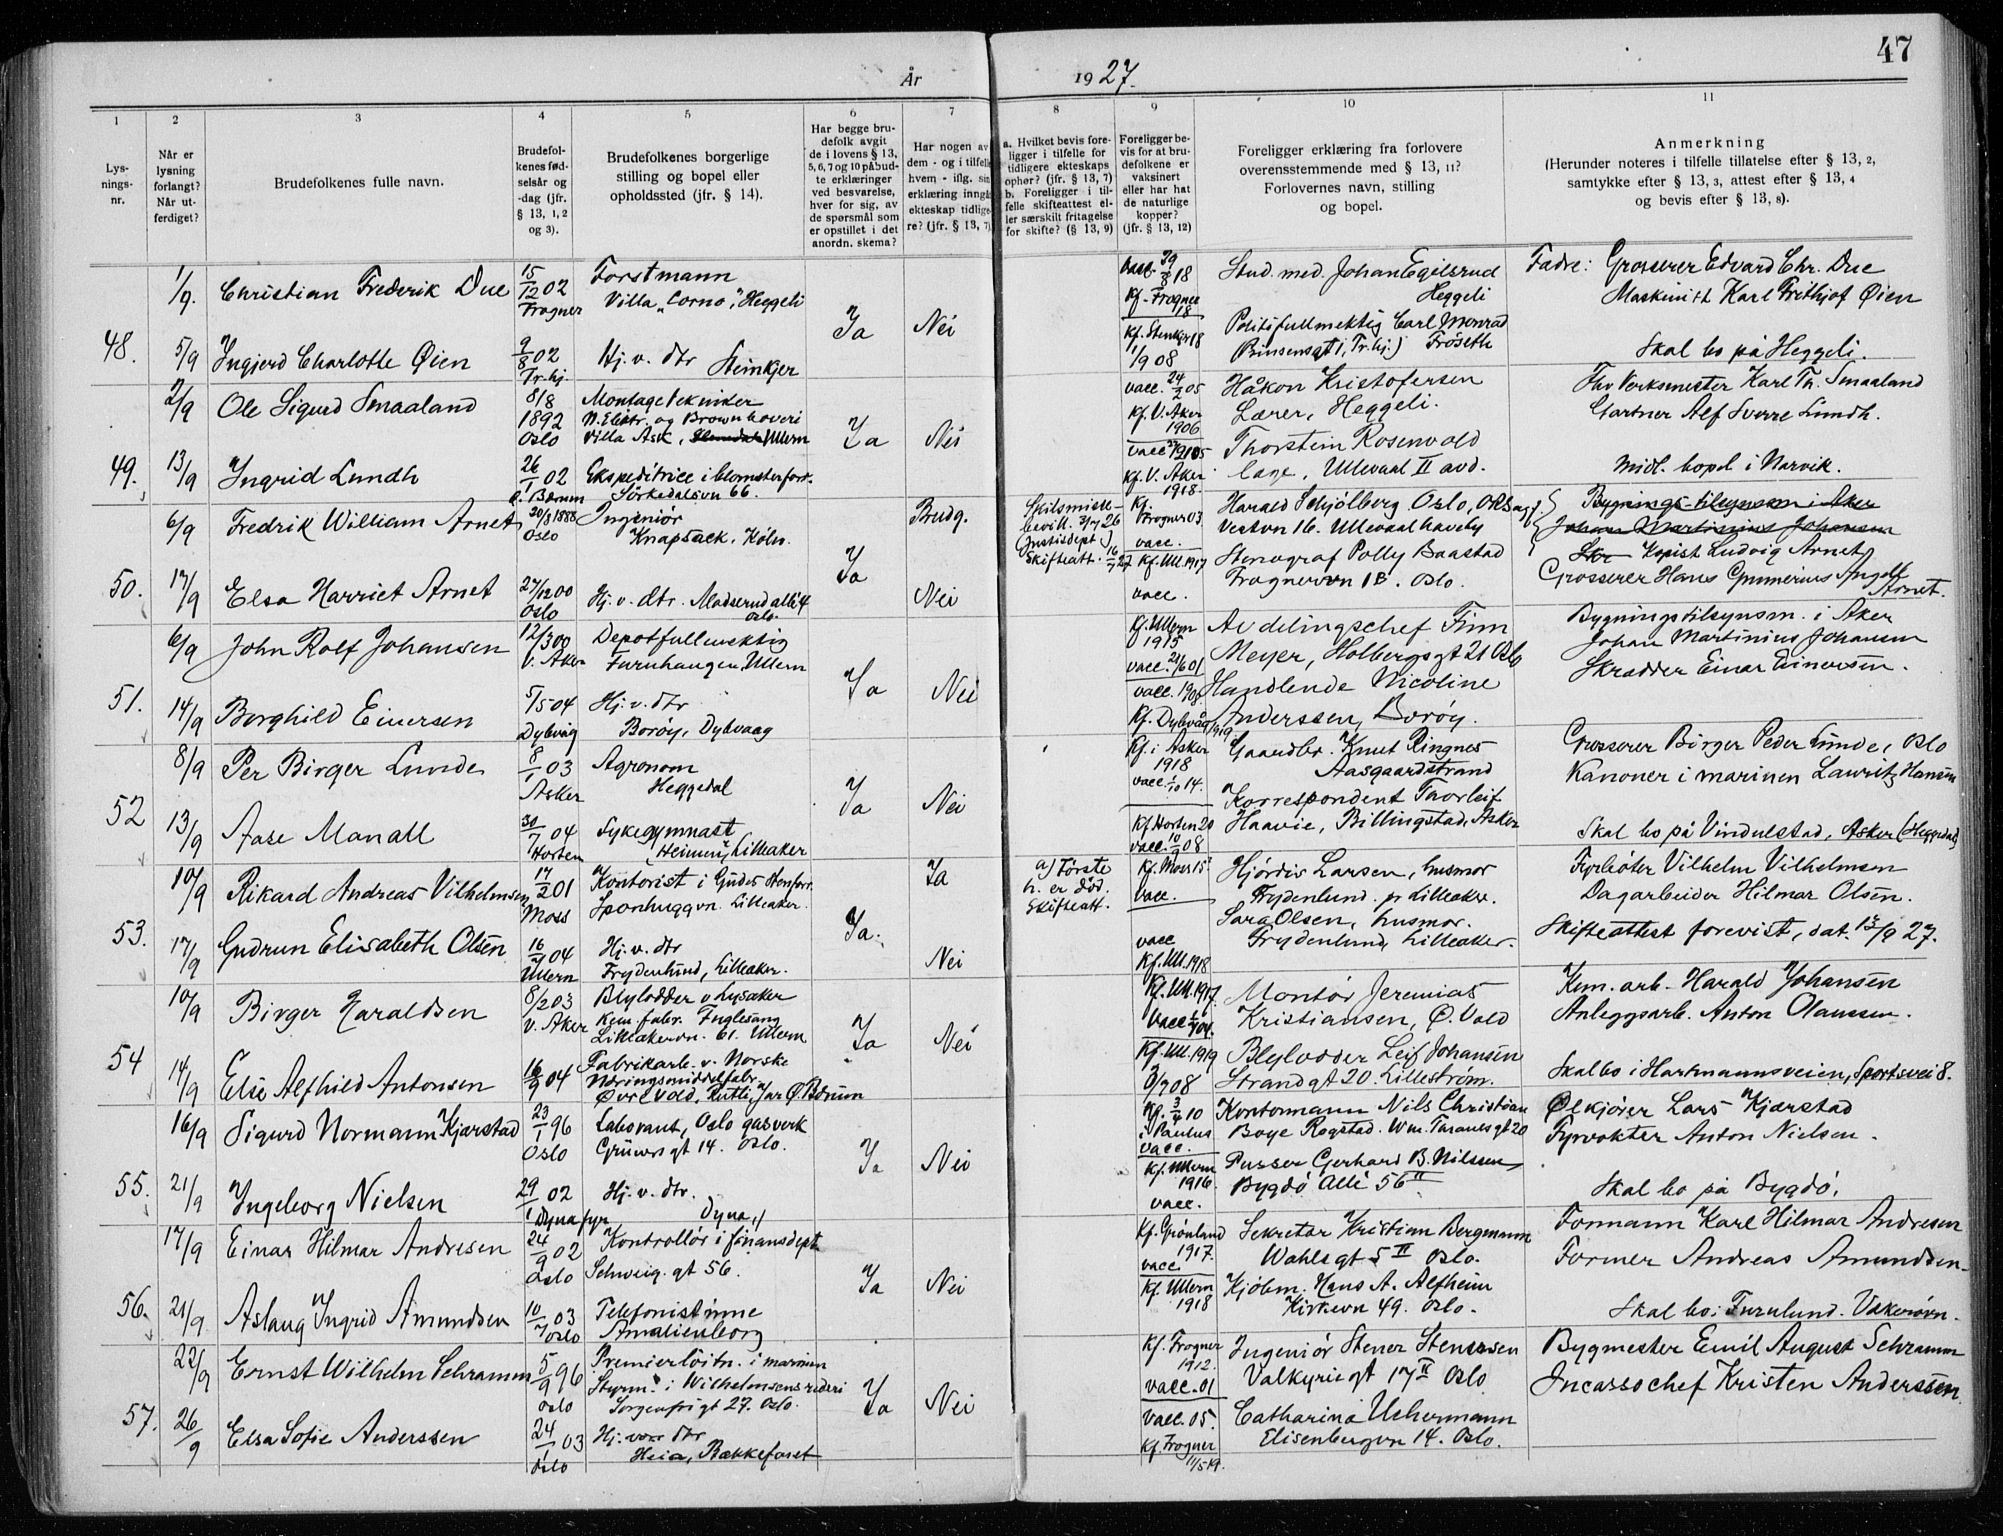 47
År
1927.
1
2
3
4
5
6
7
8
9
10
11
Lys-
nings-
nr.
Når er
lysning
forlangt?
Når ut-
ferdiget?
Brudefolkenes fulle navn.
Brudefol-
kenes fød-
selsår og
-dag (jfr.
§ 13, 1, 2
og 3).
Brudefolkenes borgerlige
stilling og bopel eller
opholdssted (jfr. § 14).
Har begge bru-
defolk avgit
de i lovens § 13,
5, 6, 7 og 10 påbud-
te erklæringer
ved besvarelse,
hver for sig, av
de spørsmål som
er opstillet i det
anordn. skema?
Har nogen av
dem - og i tilfelle
hvem - iflg. sin
erklæring inngå
ekteskap tidlige-
re? (jfr. § 13, 7)
a. Hvilket bevis fore-
ligger i tilfelle for
tidligere ekteskaps
ophør? (jfr. § 13, 7)
b. Foreligger i til-
felle skifteattest el-
ler særskilt fritagelse
for skifte? (§ 13, 9)
Foreligger be-
vis for at bru-
defolkene er
vaksinert
eller har hat
de naturlige
kopper?
(jfr. § 13, 12)
Foreligger erklæring fra forlovere
overensstemmende med § 13, 11?
Forlovernes navn, stilling
og bopel.
Anmerkning
(Herunder noteres i tilfelle tillatelse efter § 13, 2,
samtykke efter § 13, 3, attest efter § 13, 4
og bevis efter § 13, 8).
48.
1/9.
Christian Frederik Due
15/12 02
Frogner
Forstmann
Villa "Corno", Heggeli
Ja
Nei
vacc. 29/8 18
Kf. Frogner
18
Stud. med. Johan Egilsrud
Heggeli
Fadre: Grosserer Edvard Chr. Due
Maskinist Karl Frithjof Øien
5/9
Ingjerd Charlotte Øien
9/8 02
Tr.hj.
Hj. v. dtr Steinkjer
Kf. Stenkjer 18
1/9 08
Politifullmektig Carl Monrad
Brinsensgt 1, Tr.hj.) Frøseth
Skal bo på Heggeli.
49.
2/9
Ole Sigurd Smaaland
8/8
1892
Oslo
Montagetekniker
N. Elektr. og Brown boveri
Villa Ask, Ullern
Ja
Nei
vacc. 24/2 05
Kf. V. Aker
1906
Håkon Kristofersen
Lærer, Heggeli.
Fhv Verksmester Karl Th. Smaaland
Gartner Alf Sverre Lundh.
13/9
Ingrid Lundh
26/1 02
Ø. Bærum
Ekspeditrice i blomsterforr.
Sörkedalsvn 66.
Kf. V. Aker
1918.
Thorstein Rosenvold
læge, Ullevaal II avd.
Midl. bopel i Narvik.
50.
6/9
Fredrik William Arnet
20/8 1888
Oslo
Ingeniör
Knapsack, Köln.
Ja
Brudg.
Skilsmisse-
bevill. 2/7 26
(Justisdept.)
Skifteatt. 16/7 27
Kf.
Frogner 03
vacc.
Harald Schjölberg Oslo, O.R.sagf.
Vestvn 16. Ullevaal haveby
Bygnings-tilsynsm i Aker
Johan Martinius Johansen
Skr Kopist Ludvig Arnet
17/9
Elsa Harriet Arnet
27/12 00
Oslo
Hj. v. dtr. Madserud allé 4
Oslo.
Nei
Kf. Ull. 1917
vacc.
Stenograf Polly Baastad
Frognervn 1B. Oslo.
Grosserer Hans Gunnerius Angell
Arnet.
51.
6/9
John Rolf Johansen
12/3 00
V. Aker
Depotfullmektig
Furuhaugen, Ullern
Ja
Nei
Kf. Ullern
1915
vacc. 21/6 01
Avdelingschef Finn
Meyer, Holbergsgt 21 Oslo
Bygningstilsynsm. i Aker
Johan Martinius Johansen
Skrædder Einar Einersen.
14/9
Borghild Einersen
5/5 04
Dybvåg
Hj. v. dtr
Borøy, Dybvaag
vacc. 1908
Kf. Dybvåg
1919
Handlende Nicoline
Anderssen, Borøy.
52
8/9
Per Birger Lunde
8/1 03
Asker
Agronom
Heggedal
Ja
Nei
Kf. i Asker
1918
vacc. 1/10 14.
Gaardbr. Knut Ringnes
Aasgaardstrand
Grosserer Birger Peder Lunde, Oslo
Kanoner i marinen Lauritz Hansen
13/9
Aase Manall
30/7 04
Horten
Sykegymnast
"Heimen", Lilleaker
Kf. Horten 20
vacc. 10/9 08
Korrespondent Thorleif
Haavie, Billingstad, Asker
Skal bo på Vindulstad, Asker (Heggedal)
53.
10/9
Rikard Andreas Vilhelmsen
17/2 01
Moss
Kontorist i Gudes Stenforr.
Sponhuggvn. Lilleaker.
Ja.
Ja
a) Første
h. er död.
Skifteatt.
Kf. Moss 15
vacc.
Hjördis Larsen, husmor
Frydenlund pr Lilleaker.
Fyrbøter Vilhelm Vilhelmsen
Dagarbeider Hilmar Olsen.
17/9
Gudrun Elisabeth Olsen
16/9 04
Ullern
Hj. v. dtr
Frydenlund, Lilleaker.
Nei
vacc
Kf. Ull. 1918
Sara Olsen, husmor.
Frydenlund, Lilleaker.
Skifteattest forevist, dat. 13/9 27.
54
10/9
Birger Haraldsen
8/2 03
V. Aker
Blylodder v Lysaker
Kem. fabr. Fuglesang
Lilleakervn. 61. Ullern
Ja
Nei
Kf. Ull. 1917.
vacc. 04.
Montör Jeremias
Kristiansen, Ö. Vold
Kem. arb. Harald Johansen
Anleggsarb. Anton Olaussen.
14/9
Else Alfhild Antonsen
16/9 04
Fabrikarb. v. Norske
Næringsmiddelfabr.
Øvrevold, Rutli, Jar Ø. Bærum
Kf. Ull. 1919
Blylodder Leif Johansen
Strandgt 20. Lilleström.
Skal bo i Hartmannsveien, Sportsvei 8.
55.
16/9
Sigurd Normann Kjærstad
23/1 96
Oslo
Laborant, Oslo gasverk
Grünersgt 14. Oslo.
Ja
Nei
Kf. 3/4 10
i Paulus
vacc.
Kontormann Nils Christian
Boye Rogstad. Wm. Thranesgt 20
Ölkjörer Lars Kjærstad
Fyrvokter Anton Nielsen.
21/9
Ingeborg Nielsen
29/1 02
Dyna fyr
Hj. v. dtr.
Dyna
Kf. Ullern
1916.
vacc.
Pusser Gerhard B. Nilssen
Bygdö Allé 56 II
Skal bo på Bygdö.
56.
17/9
Einar Hilmar Andresen
24/9 02
Oslo
Kontrollör i finansdept
Schweig.gt 56.
Ja
Nei
Kf. Grønland
1917.
vacc.
Sekretær Kristian Bergmann
Wahlsgt 5 II Oslo.
Formann Karl Hilmar Andresen
Former Andreas Amundsen
21/9
Aslaug Ingrid Amundsen
10/7 03
Oslo
Telefonistinne
Amalienborg
Kf. Ullern
1918
Kjöbm. Hans A. Alfheim
Kirkevn 49. Oslo.
Skal bo: Furulund. Vækerøvn.
57.
22/9
Ernst Wilhelm Schramm
5/9 96
Oslo
Premierlöitn. i marinen
Styrm. i Wilhelmsens rederi
Sorgenfrigt 27. Oslo.
Ja
Nei
Kf. Frogner
1912.
vacc. 01
Ingeniör Stener Stenersen
Valkyriegt 17 II Oslo
Bygmester Emil August Schramm
Incassochef Kristen Anderssen.
26/9
Elsa Sofie Anderssen
24/1 03
Oslo
Hj. vær. dtr
Heia, Bækkefaret
vacc. 05.
Kf. Frogner
11/5 19.
Catharina Uchermann
Elisenbergvn 14. Oslo.